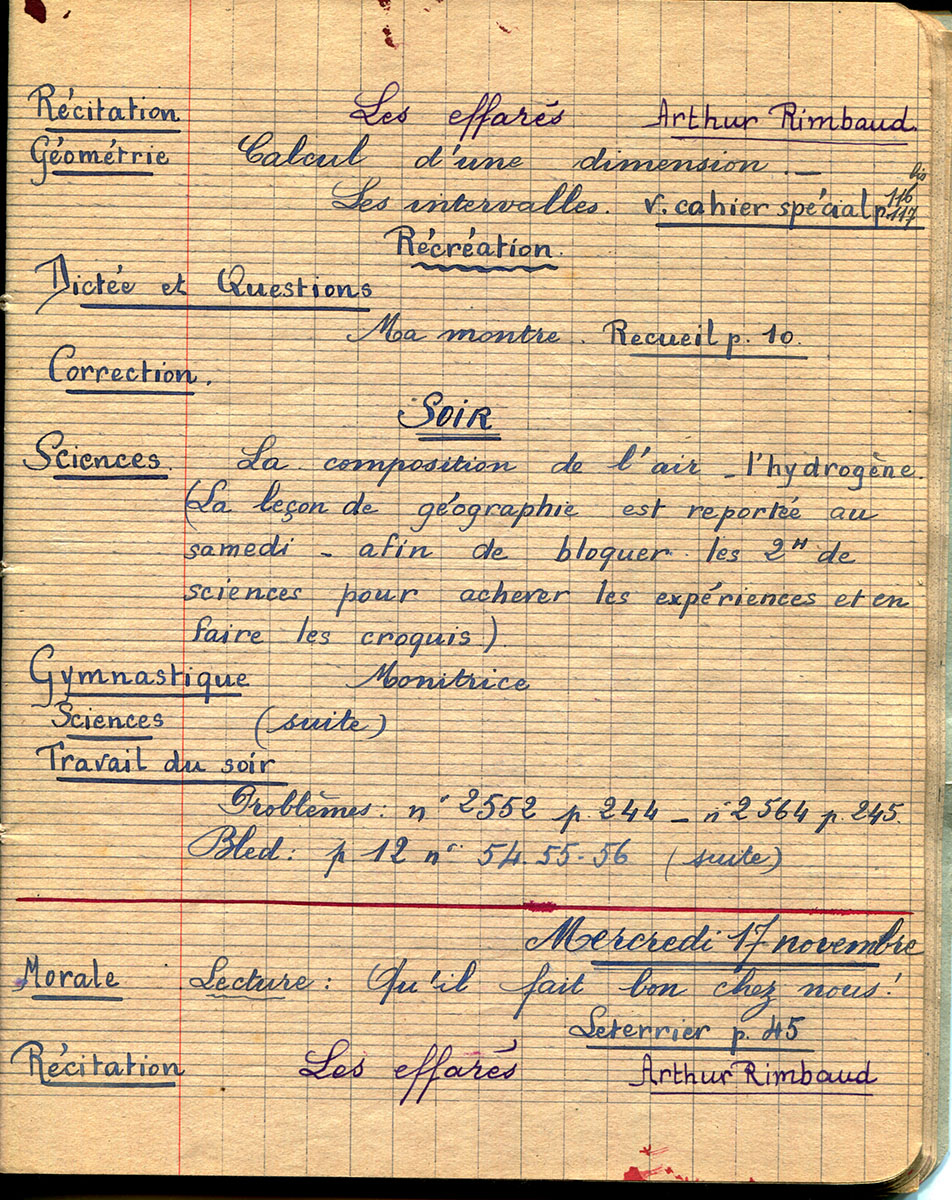 Récitation Les effarés Arthur Rimbaud.
Géométrie Calcul d'une dimension. _
Les intervalles. v. cahier spécial p. 116 bis 117
Récréation.
Dictée et Questions
Ma montre. Recueil p. 10.
Correction.
SOIR
Sciences. La composition de l'air _ l'hydrogène.
(La leçon de géographie est reportée au
samedi - afin de bloquer les 2H de
sciences pour achever les expériences et en
faire les croquis)
Gymnastique Monitrice
Sciences (suite)
Travail du soir
Problèmes: n° 2552 p. 244 _ n° 2564 p. 245.
Bled: p 12 n° 54.55-56 (suite)
Mercredi 17 novembre
Morale Lecture: Qu'il fait bon chez nous!
Leterrier p. 45
Récitation Les effarés Arthur Rimbaud